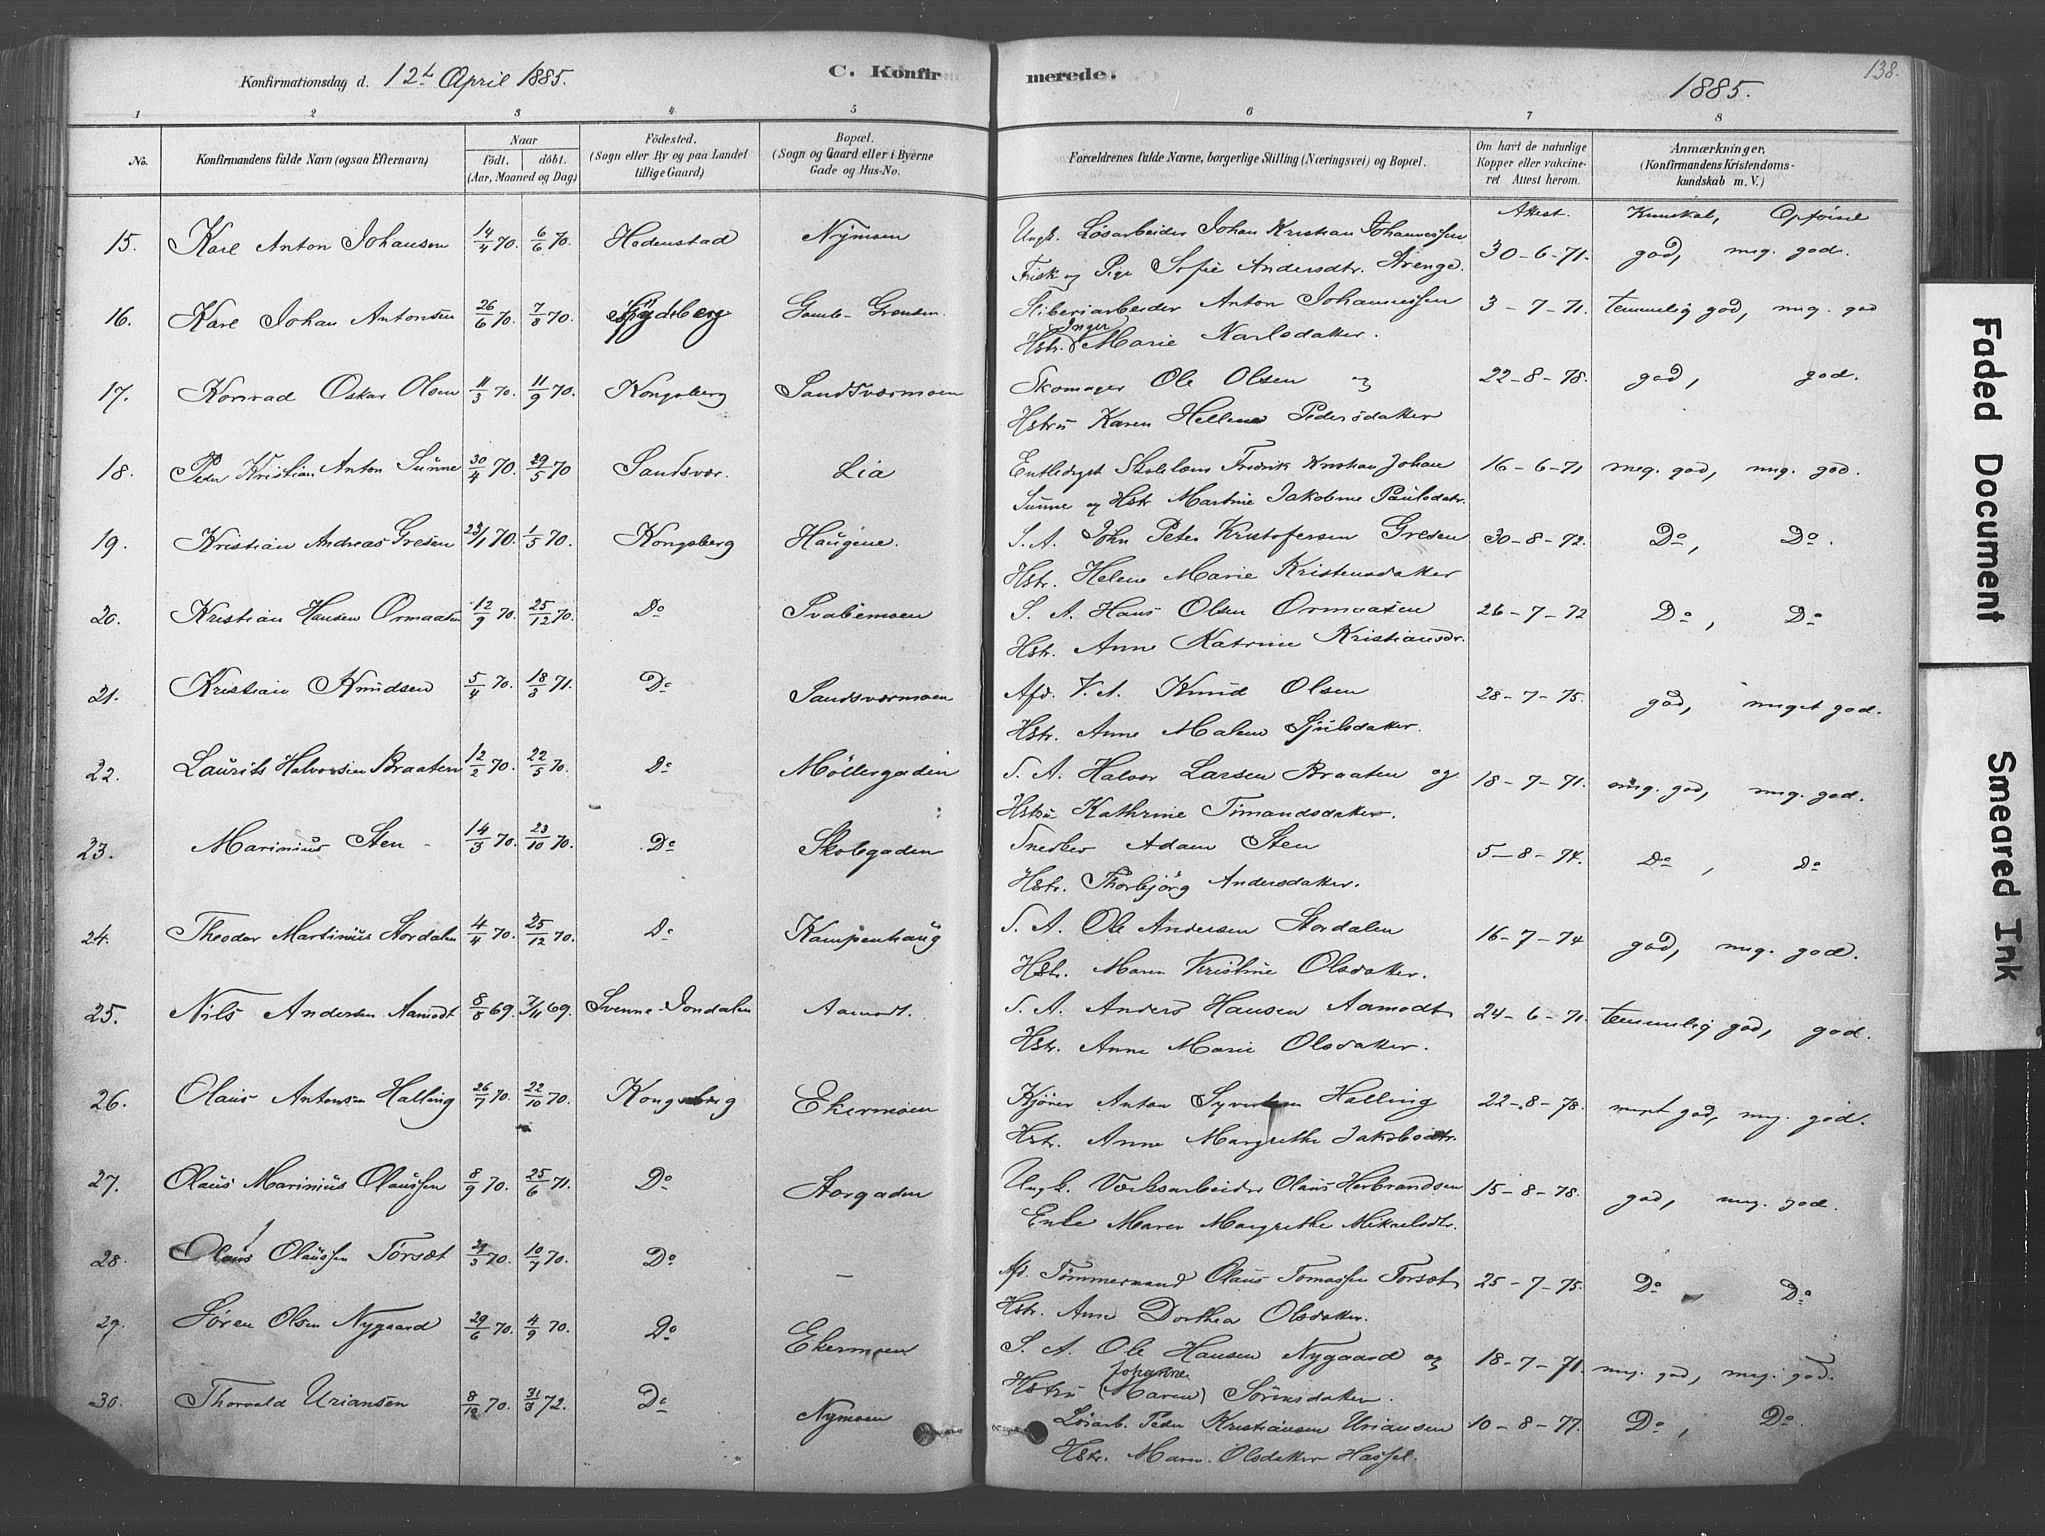 Konfirmationsdag d. 12t April 1885.
C. Konfirmerede.
1885.
138.
1 2 3 4 5 6 7 8
No.
Konfirmandens fulde Navn (ogsaa Efternavn)
Naar
födt. döbt.
(Aar, Maaned og Dag)
Födested.
(Sogn eller By og paa Landet
tillige Gaard)
Bopæl.
(Sogn og Gaard eller i Byerne
Gade og Hus-No.
Forældrenes fulde Navne, borgerlige Stilling (Næringsvei) og Bopæl.
Om havt de naturlige
Kopper eller vakcine-
ret Attest herom.
Anmærkninger,
(Konfirmandens Kristendoms-
kundskab m. V.)
Attest. Kunskab, Opförsel
15. Karl Anton Johansen 14/4 70. 6/6 70. Hedenstad Nymoen Ungk. Løsarbeider Johan Kristian Johannessen 30-6-71. god, meg. god.
Frisk og Pige Sofie Andersdtr. Strenge.
16. Karl Johan Antonsen 26/6 70. 7/8 70. Spydeberg Gamle-Grænden. Sliberiarbeider Anton Johannessen 3-7-71. temmelig god, meg. god
Hstr. Inger Marie Karlsdatter.
17. Konrad Oskar Olsen 11/3 70. 11/9 70. Kongsberg Sandsværmoen Skomager Ole Olsen og 22-8-78. god, god.
Hstru Karen Hellene Pedersdatter
18. Peder Kristian Anton Sunne 30/4 70. 29/5 70 Sandsvær. Lia Entlediget Skolelærer Fredrik Kristian Johan 16-6-71 meg. god, meg. god.
Sunne og Hstr Martine Jakobine Paulsdatr.
19. Kristian Andreas Gresen 23/1 70. 1/5 70. Kongsberg Haugene. S. A. John Peter Kristofersen Gresen 30-8-72. Do, Do.
Hstr. Helene Marie Kristensdatter
20. Kristian Hansen Ormaasen 12/9 70. 25/12 70. Do Svabemoen S. A. Hans Olsen Ormaasen 26-7-72 Do, Do
Hstr. Anne Katrine Kristiansdr.
21. Kristian Knudsen 5/4 70. 18/3 71. Do Sandsværmoen Afd. V. A. Knud Olsen 28-7-75. god, meget god.
Hstr. Anne Malene Sjulsdatter.
22. Laurits Halvorsen Braaten 12/2 70. 22/5 70. Do Möllergaden S. A. Halvor Larsen Braaten og 18-7-71. meg. god, meg. god.
Hstru Kathrine Timandsdatter.
23. Marinius Sten 14/3 70. 23/10 70. Do Skolegaden Snedker Adam Sten 5-8-74. Do, Do
Hstr. Thorbjörg Andersdatter.
24. Theodor Martinius Stordalen 4/4 70. 25/12 70. Do Kampenhaug S. A. Ole Andersen Stordalen 16-7-74 god, meg. god.
Hstr. Maren Kristine Olsdatter.
25. Nils Andersen Aamodt 8/8 69. 7/11 69. Svenne-Jondalen Aamodt. S. A. Anders Hansen Aamodt 24-6-71. temmelig god, god.
Hstr. Anne Marie Olsdatter.
26. Olaus Antonsen Halling 26/7 70. 22/10 70. Kongsberg Ekermoen Kjörer Anton Syvertsen Halling 22-8-78. meget god, meg. god.
Hstr. Anne Margrethe Jakobsdtr.
27. Olaus Marinius Olaussen 8/9 70. 25/6 71. Do Storgaden Ungk. Værksarbeider Olaus Herbrandsen 15-8-78. god, meg. god.
Enke Maren Margrethe Mikaelsdtr.
28. Olaus Olaussen Torsæt 29/5 70. 10/7 70. Do — Afd. Tömmermand Olaus Tomassen Torsæt 25-7-75. Do Do
Hstr. Anne Dorthea Olsdatter.
29. Sören Olsen Nygaard 29/6 70. 4/9 70. Do Ekermoen S. A. Ole Hansen Nygaard og 18-7-71. meg. god, meg. god.
Hstru Johanne (Maren) Sörensdatter.
30. Thorvald Uriansen 8/12 70. 31/3 72. Do Nymoen Lösarb. Peder Kristiansen Uriansen 10-8-77. Do, Do.
Hstr. Maren Olsdatter Hassel.
Faded Document
Smeared Ink